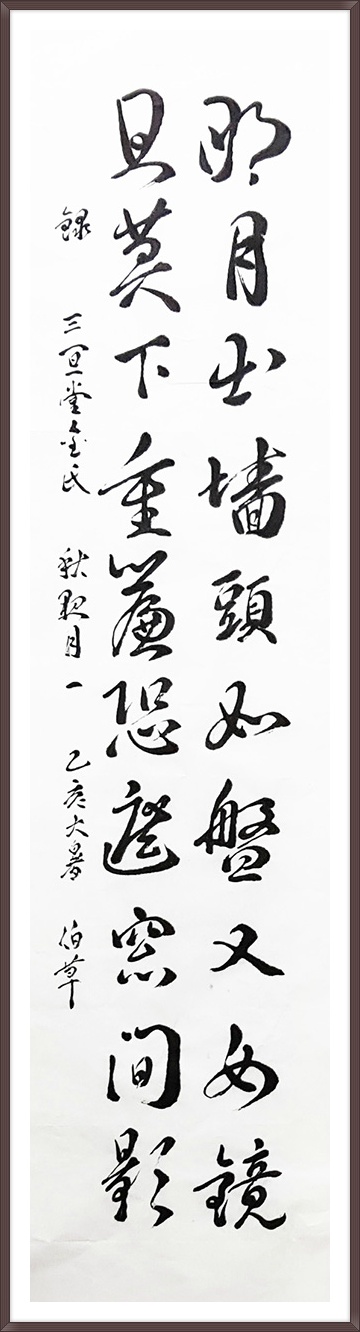 明月出墻頭如盤又如鏡
且莫下重簾恐遮窓間影
錄 三宜堂金氏 秋夜月一 己亥大暑 伯草